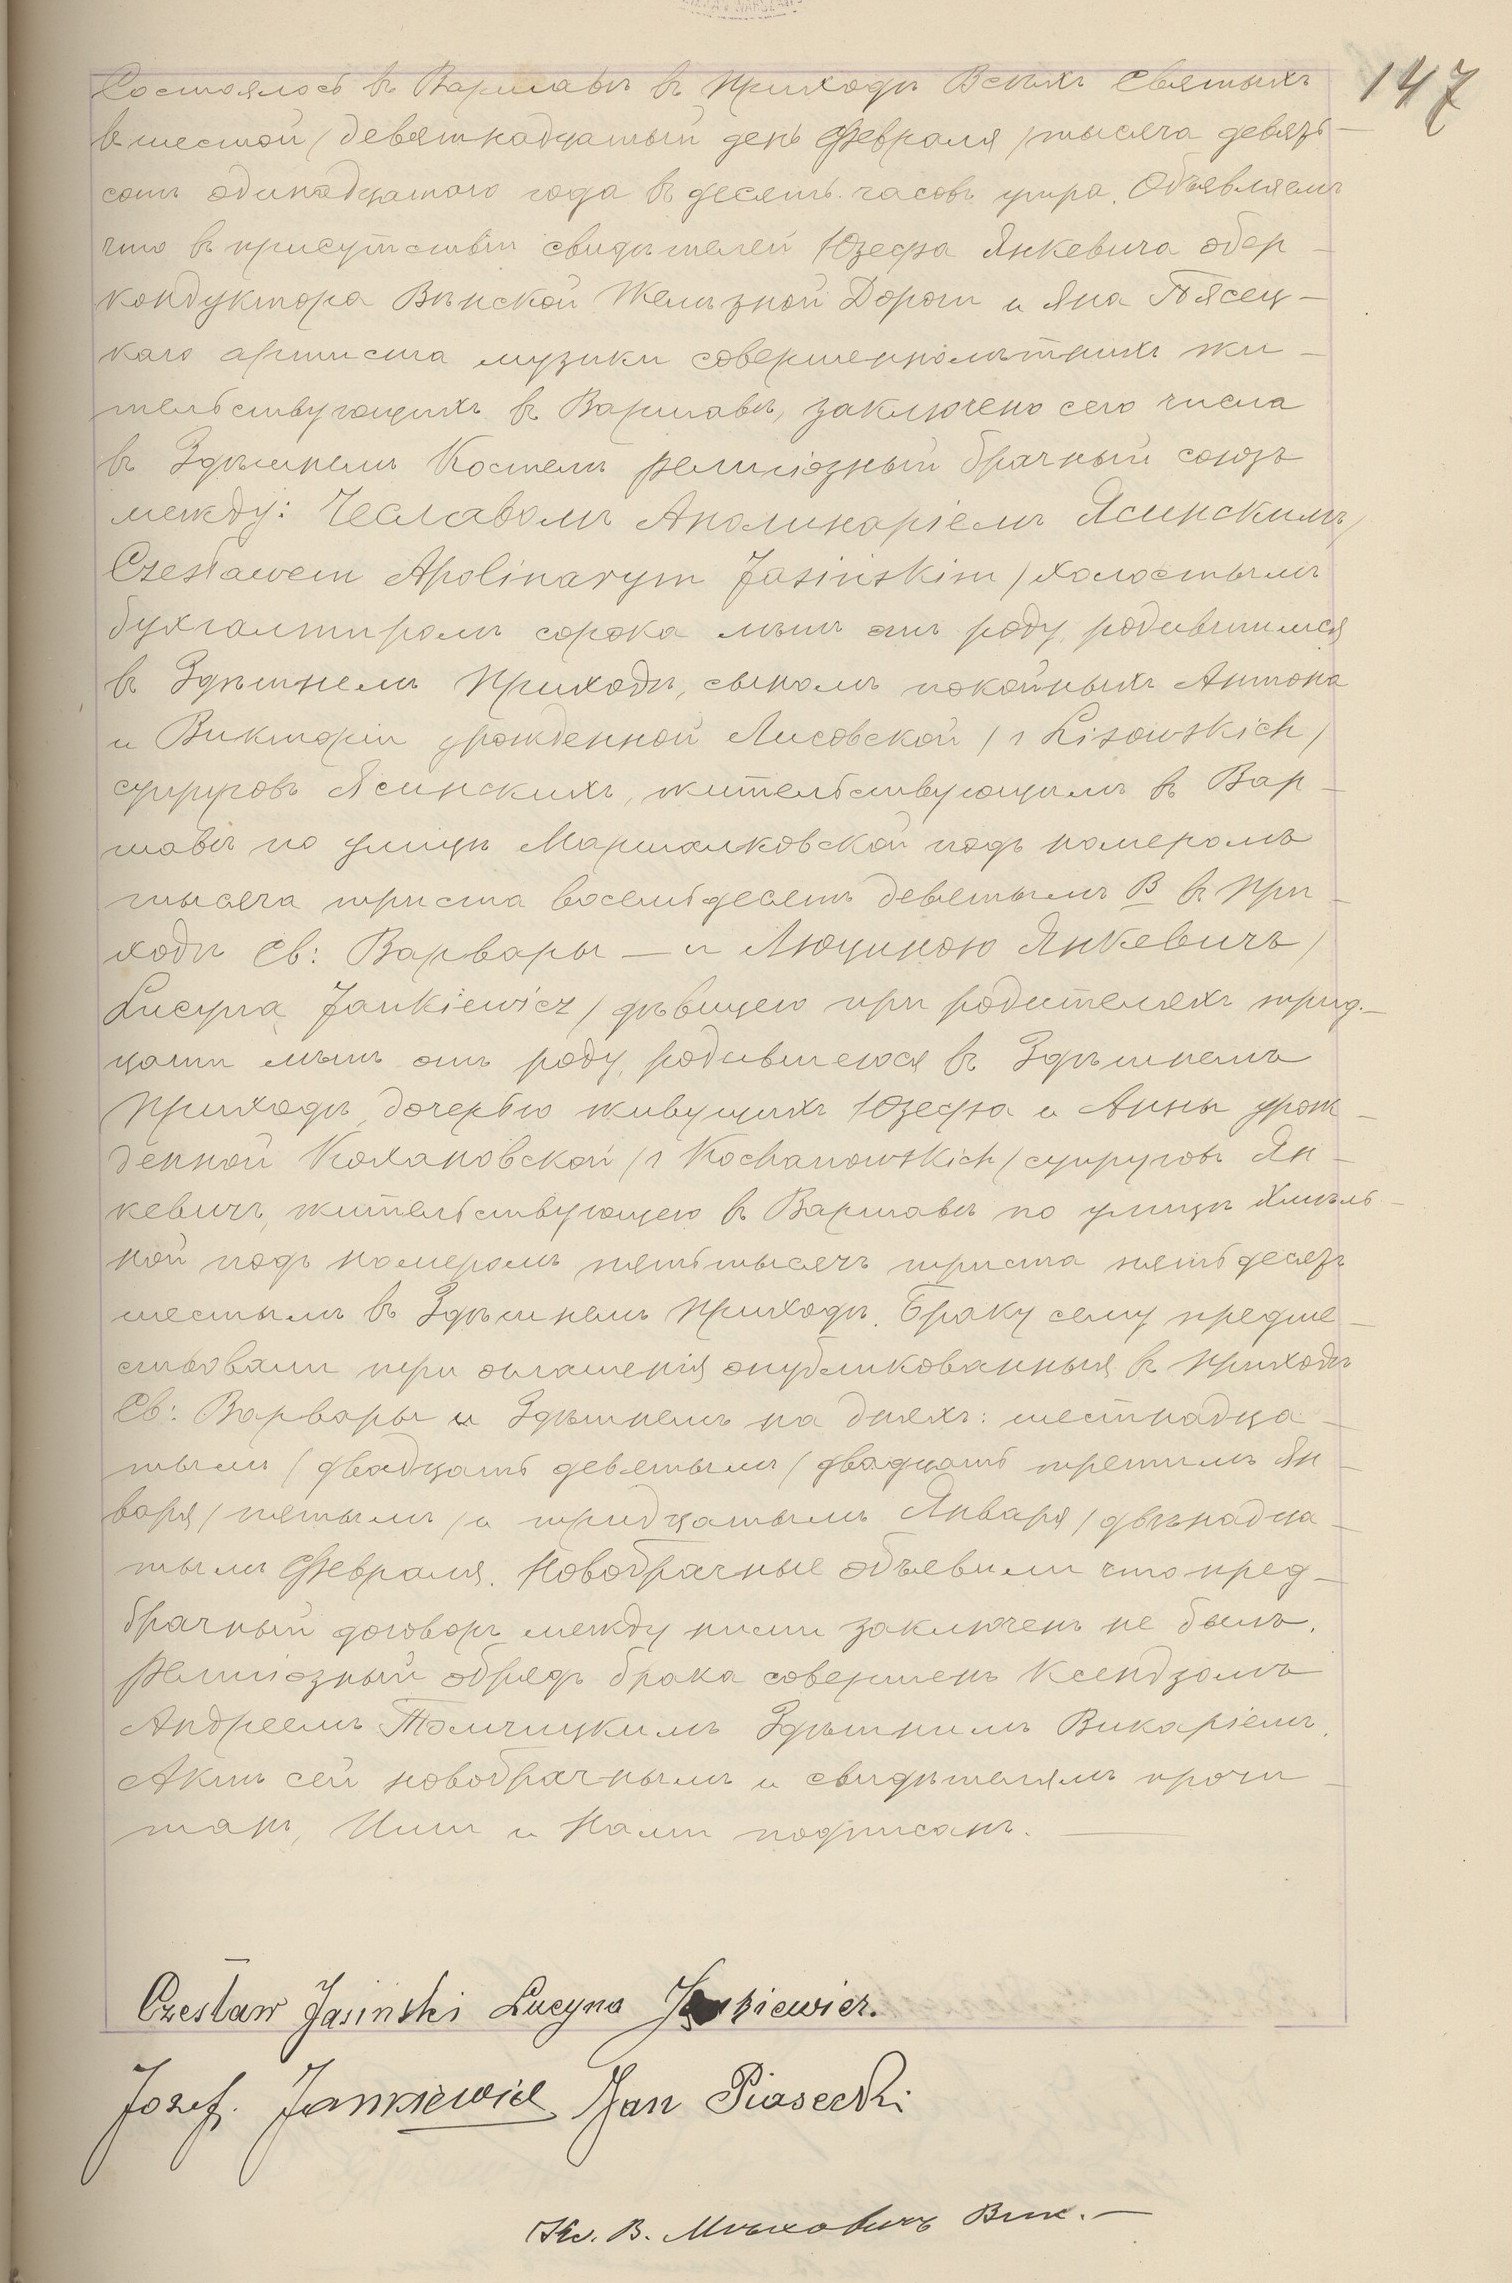 147
Состоялось въ Варшавѣ въ приходѣ Всѣхъ Святыхъ
въ шестой / девятнадцатый день Февраля / тысяча девять-
сотъ одинадцатого года въ десять часовъ утра. Объявляемъ
что въ присутствіи свидѣтелей Юзефа Янкевича обер-
кондуктора Вѣнской Желѣзной Дороги и Яна Пясец-
каго артиста музыки совершеннолѣтнихъ жи-
тельствующихъ въ Варшавѣ, заключено сего числа
въ Здѣшнемъ Костелѣ религіозный брачный союзъ
между: Чеславомъ Аполинаріемъ Ясинскимъ /
Czesławem Apolinarym Jasińskim / холостымъ
бухгалтиромъ сорока лѣтъ отъ роду, родившимся
въ Здѣшнемъ приходѣ, сыномъ покойныхъ Антона
и Викторіи урожденной Лисовской / z Lisowskich /
супруговъ Ясинскихъ, жительствующимъ въ Вар-
шавѣ по улицѣ Маршалковской подъ номеромъ
тысяча триста восемьдесятъ девятымъ В въ при-
ходѣ Св: Варвары — и Люциною Янкевичъ /
Lucyną Jankiewicz / дѣвицею при родителяхъ трид-
цати лѣтъ отъ роду, родившеюся въ Здѣшнемъ
приходѣ, дочерью живущихъ Юзефа и Анны урож-
денной Кохановской / z Kochanowskich / супруговъ Ян-
кевичъ, жительствующею въ Варшавѣ по улицѣ Хмѣль-
ной подъ номеромъ пятьтысячъ триста пятьдесятъ
шестымъ въ Здѣшнемъ приходѣ. Браку сему предше-
ствовали три оглашенія опубликованныя въ приходѣ
Св: Варвары и Здѣшнемъ на дняхъ: шестнадца-
тымъ / двадцать девятымъ / двадцать третимъ Ян-
варя / пятымъ / и тридцатымъ Января / двѣнадца-
тымъ Февраля. Новобрачные объявили что пред-
брачный договоръ между ними заключенъ не былъ.
Религіозный обрядъ брака совершенъ Ксендзомъ
Андреемъ Томчицкимъ Здѣшнимъ Викаріемъ.
Актъ сей новобрачнымъ и свидѣтелямъ прочи-
танъ, Ими и Нами подписанъ.
Czesław Jasiński Lucyna Jankiewicz.
Józef. Jankiewicz Jan Piasecki
Кс. В. Мѣховичъ Вик. —